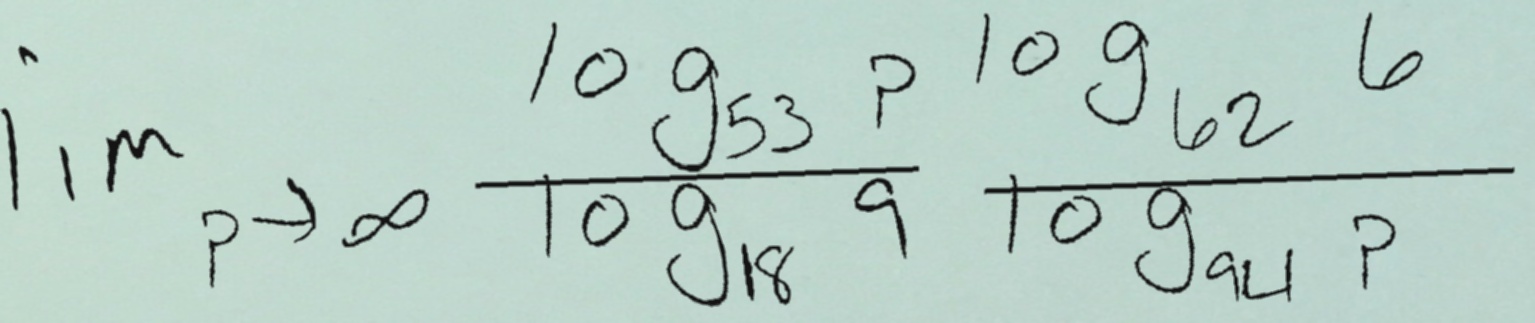 \lim_{p \to \infty} \frac{\log_{53} p}{\log_{18} 9} \frac{\log_{62} 6}{\log_{94} p}